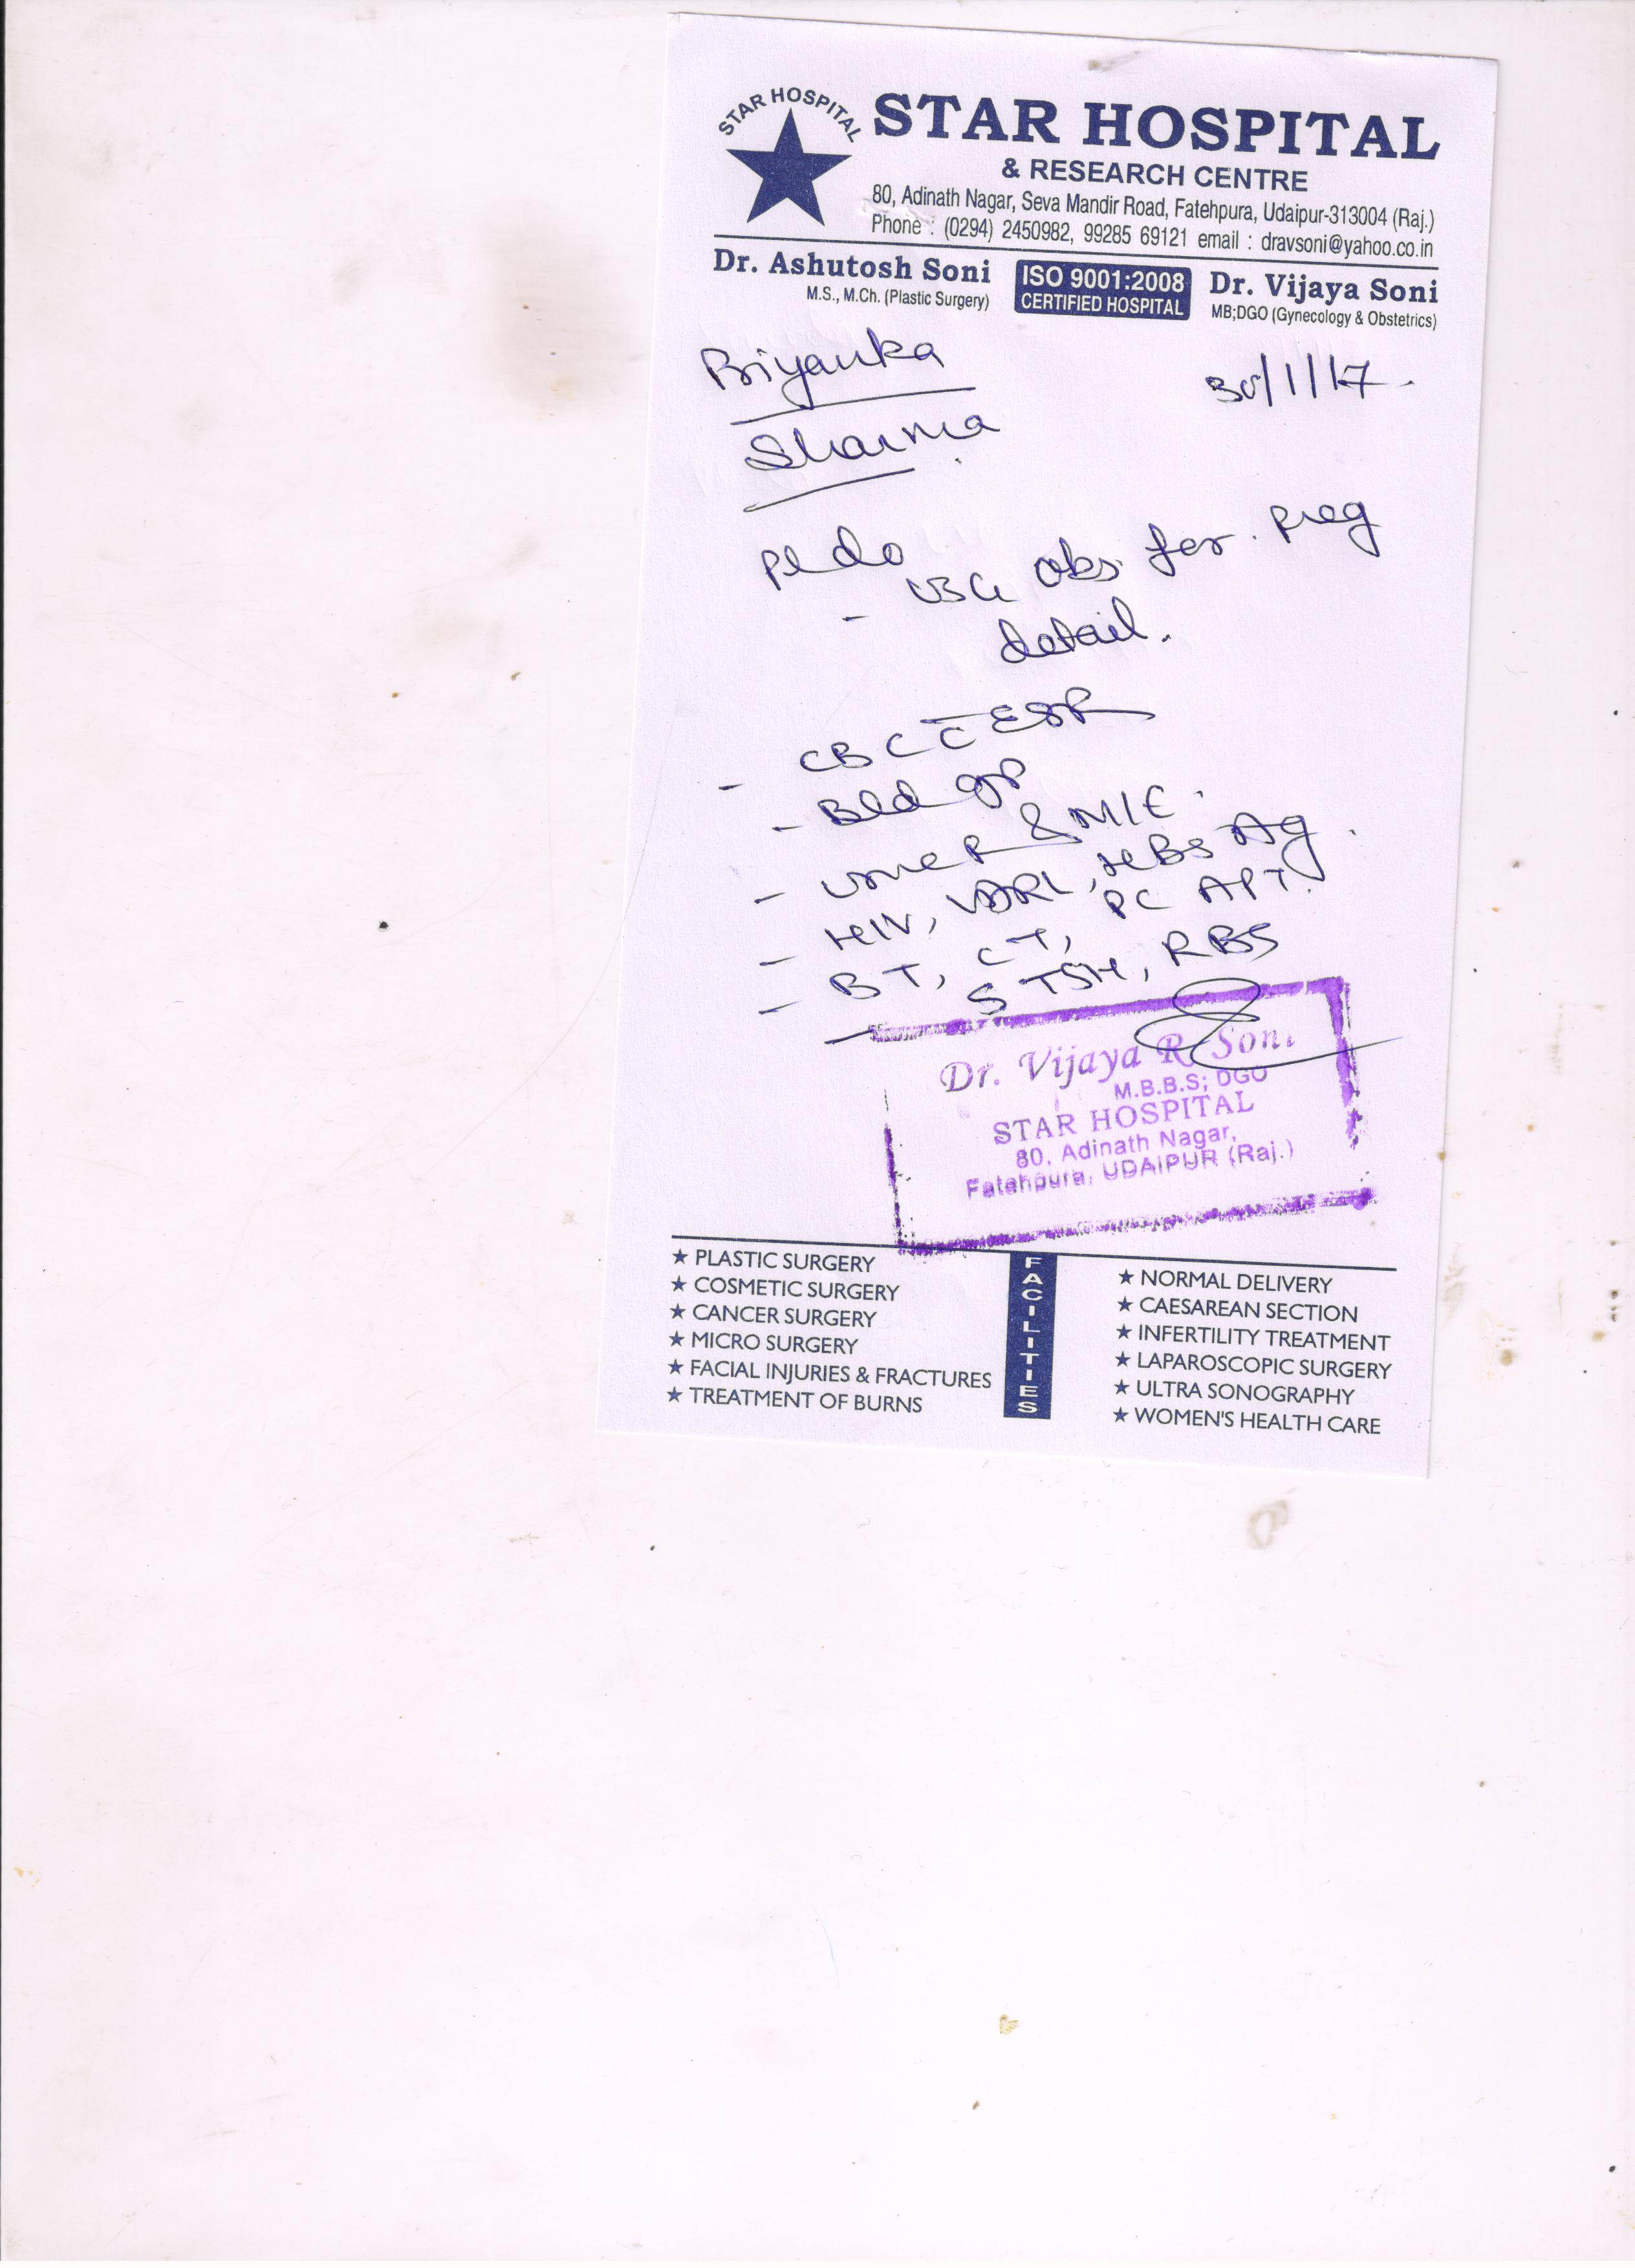 STAR HOSPITAL
STAR HOSPITAL
& RESEARCH CENTRE
80, Adinath Nagar, Seva Mandir Road, Fatehpura, Udaipur-313004 (Raj.)
Phone : (0294) 2450982, 99285 69121 email : dravsoni@yahoo.co.in
Dr. Ashutosh Soni
M.S., M.Ch. (Plastic Surgery)
ISO 9001:2008
CERTIFIED HOSPITAL
Dr. Vijaya Soni
MB;DGO (Gynecology & Obstetrics)
Priyanka
Sharma
30/1/17
Pl do
- USG Obs for. Preg
detail.
- CBC c̄ ESR
- Bld gp
- Urine R & M/E.
- HIV, VDRL, HBsAg.
- BT, CT, PC APT.
- S TSH, RBS
Dr. Vijaya R. Soni
M.B.B.S; DGO
STAR HOSPITAL
80, Adinath Nagar,
Fatehpura, UDAIPUR (Raj.)
FACILITIES
★ PLASTIC SURGERY
★ COSMETIC SURGERY
★ CANCER SURGERY
★ MICRO SURGERY
★ FACIAL INJURIES & FRACTURES
★ TREATMENT OF BURNS
★ NORMAL DELIVERY
★ CAESAREAN SECTION
★ INFERTILITY TREATMENT
★ LAPAROSCOPIC SURGERY
★ ULTRA SONOGRAPHY
★ WOMEN'S HEALTH CARE